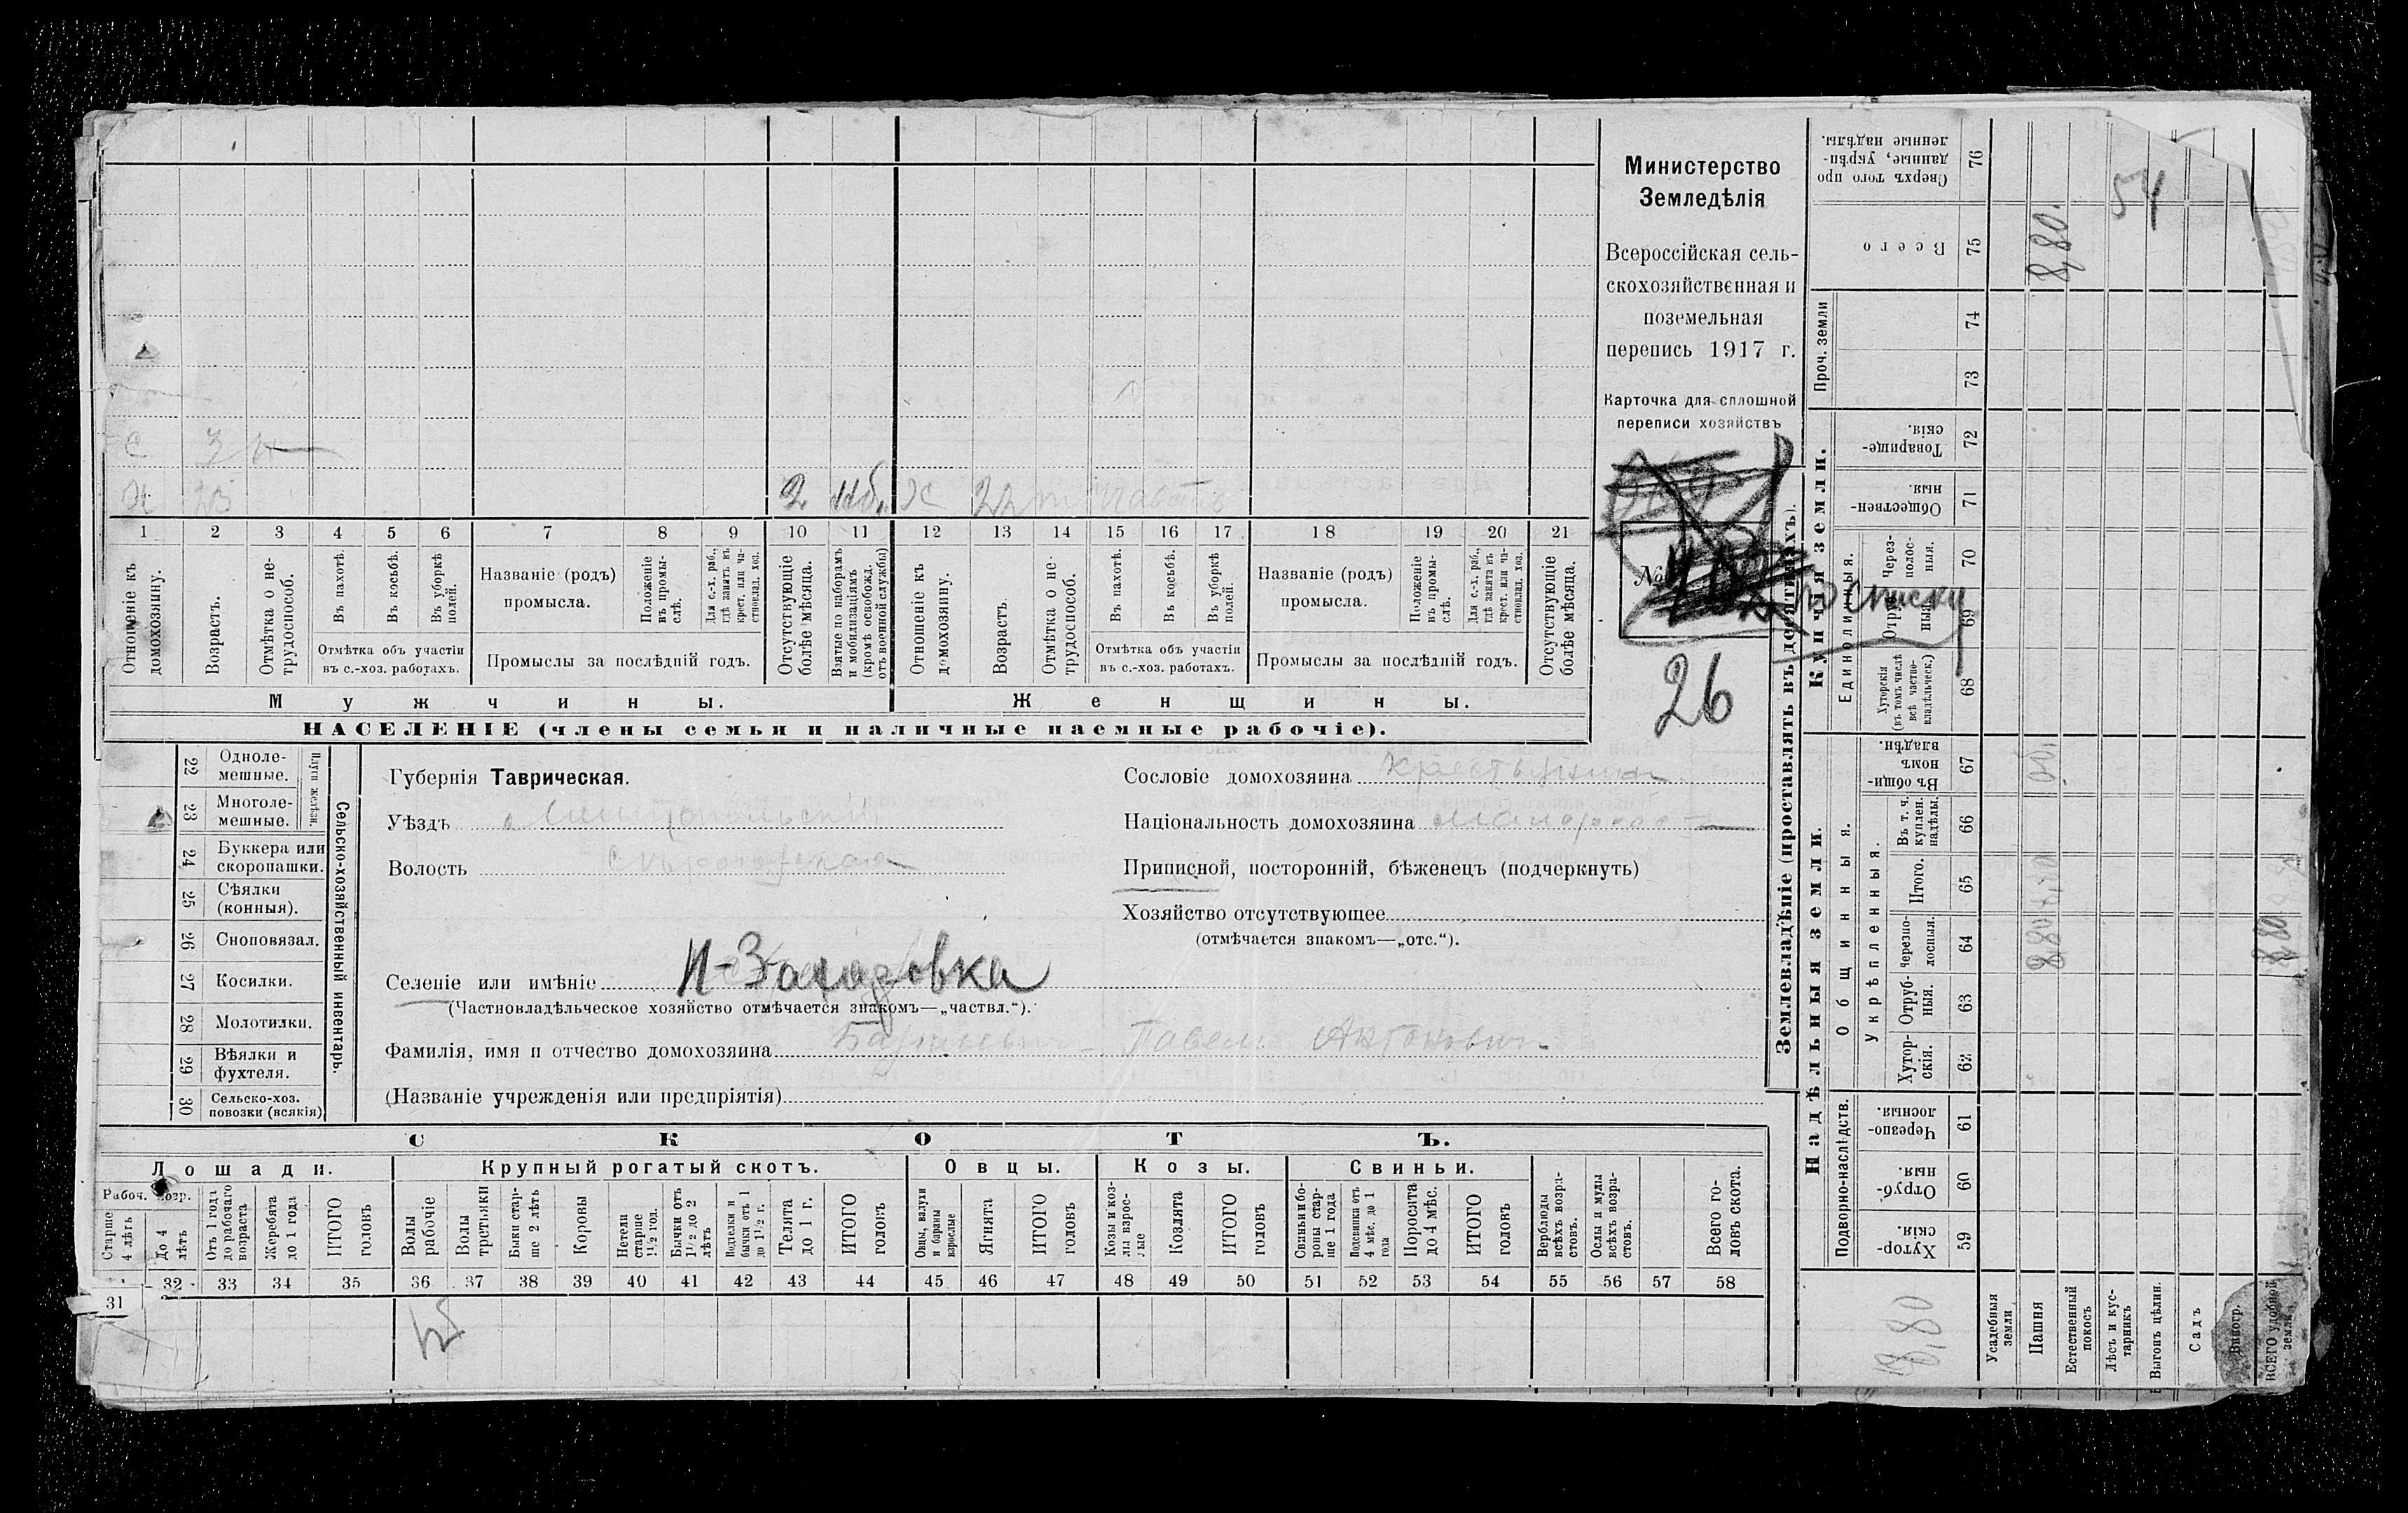 Министерство
Земледѣлія
Всероссійская сель-
скохозяйственная и
поземельная
перепись 1917 г.
Карточка для сплошной
переписи хозяйствъ
№
по списку
26
2
1 2 3 4 5 6 7 8 9 10 11 12 13 14 15 16 17 18 19 20 21
Отношеніе къ домохозяину.
Возрастъ.
Отмѣтка о не-
трудоспособ.
Въ пахотѣ.
Въ косьбѣ.
Въ уборкѣ полей.
Отмѣтка объ участіи
въ с.-хоз. работахъ.
Названіе (родъ)
промысла.
Положеніе въ промы-
слѣ.
Для с.-х. раб., гдѣ занятъ въ крест. или ча-
стновлад. хоз.
Промыслы за послѣдній годъ.
Отсутствующіе болѣе мѣсяца.
Взятые по наборамъ и мобилизаціямъ (кромѣ освобожд. отъ военной службы)
Отношеніе къ домохозяину.
Возрастъ.
Отмѣтка о не-
трудоспособ.
Въ пахотѣ.
Въ косьбѣ.
Въ уборкѣ полей.
Отмѣтка объ участіи
въ с.-хоз. работахъ.
Названіе (родъ)
промысла.
Положеніе въ промы-
слѣ.
Для с.-х. раб., гдѣ занята въ крест. или ча-
стновлад. хоз.
Промыслы за послѣдній годъ.
Отсутствующіе болѣе мѣсяца.
Мужчины.
Женщины.
НАСЕЛЕНІЕ (члены семьи и наличные наемные рабочіе).
22 Одноле-
мешные.
23 Многоле-
мешные.
Плуги желѣзн.
24 Буккера или
скоропашки.
25 Сѣялки
(конныя).
26 Сноповязал.
27 Косилки.
28 Молотилки.
29 Вѣялки и
фухтеля.
30 Сельско-хоз.
повозки (всякія)
Сельско-хозяйственный инвентарь.
Губернія Таврическая.
Уѣздъ Мелитопольскій
Волость
Селеніе или имѣніе
(Частновладѣльческое хозяйство отмѣчается знакомъ—„частвл.“).
Фамилія, имя и отчество домохозяина Павелъ Антоновичъ
(Названіе учрежденія или предпріятія)
Сословіе домохозяина крестьянинъ
Національность домохозяина Малороссъ
Приписной, посторонній, бѣженецъ (подчеркнуть)
Хозяйство отсутствующее
(отмѣчается знакомъ—„отс.“).
СКОТЪ.
Лошади.
Крупный рогатый скотъ.
Овцы.
Козы.
Свиньи.
Рабоч. возр.
Старше 4 лѣтъ
До 4 лѣтъ
Отъ 1 года до рабочаго возраста
Жеребята до 1 года
ИТОГО головъ
Волы рабочіе
Волы третьяки
Быки стар-
ше 2 лѣтъ
Коровы
Нетели старше 1½ год.
Бычки отъ 1½ до 2 лѣтъ
Подтелки и бычки отъ 1 до 1½ г.
Телята до 1 г.
ИТОГО головъ
Овцы, валухи и бараны взрослые
Ягнята
ИТОГО головъ
Козы и коз-
лы взрос-
лые
Козлята
ИТОГО головъ
Свиньи и бо-
ровы стар-
ше 1 года
Подсвинки отъ 4 мѣс. до 1 года
Поросята до 4 мѣс.
ИТОГО головъ
Верблюды всѣхъ возра-
стовъ.
Ослы и мулы всѣхъ возра-
стовъ.
Всего го-
ловъ скота.
31 32 33 34 35 36 37 38 39 40 41 42 43 44 45 46 47 48 49 50 51 52 53 54 55 56 57 58
Землевладѣніе (проставлять въ десятинахъ).
Надѣльныя земли.
Купчія земли.
Проч. земли
Подворно-наслѣдств.
Общинныя.
Укрѣпленныя.
Единоличныя.
Сверхъ того про
данные, укрѣп-
ленные надѣлы.
76
Всего
75
74
73
Товарище-
скія.
72
Обществен-
ныя.
71
Через-
полос-
ныя.
70
Отруб-
ныя.
69
Хуторскія (въ томъ числѣ всѣ частно-
владѣльческ.)
68
Въ общи-
номъ
владѣн.
67
Въ т. ч. куплен. надѣлы.
66
Итого.
65
Черезпо-
лосныя.
64
Отруб-
ныя.
63
Хутор-
скія.
62
Черезпо-
лосныя.
61
Отруб-
ныя.
60
Хутор-
скія.
59
Усадебныя земли
Пашня
Естественный покосъ
Лѣсъ и кус-
тарникъ
Выгонъ цѣлин.
Садъ
Виногр.
ВСЕГО удобной земли
8,80
54
8,80
8,80
8,80